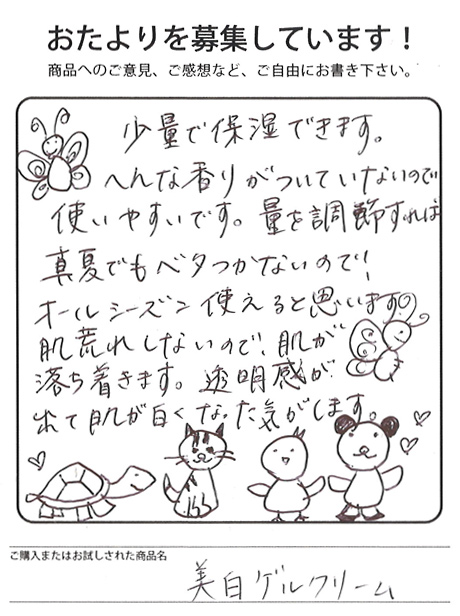 おたよりを募集しています！
商品へのご意見、ご感想など、ご自由にお書き下さい。
少量で保湿できます。
へんな香りがついていないので
使いやすいです。量を調節すれば
真夏でもベタつかないので！
オールシーズン使えると思います♡
肌荒れしないので、肌が
落ち着きます。透明感が
出て肌が白くなった気がします。
ご購入またはお試しされた商品名
美白ゲルクリーム